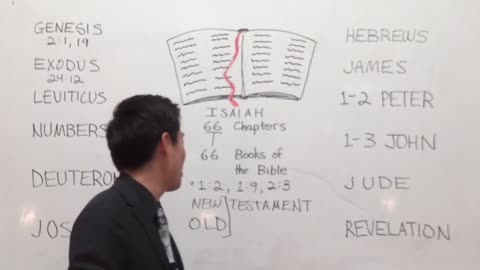 GENESIS
2:1, 19
EXODUS
24:12
LEVITICUS
NUMBERS
DEUTERO
JOS
ISAIAH
66 Chapters
66 Books of
the Bible
*1:2, 1:9, 2:3
NEW TESTAMENT
OLD
HEBREWS
JAMES
1-2 PETER
1-3 JOHN
JUDE
REVELATION